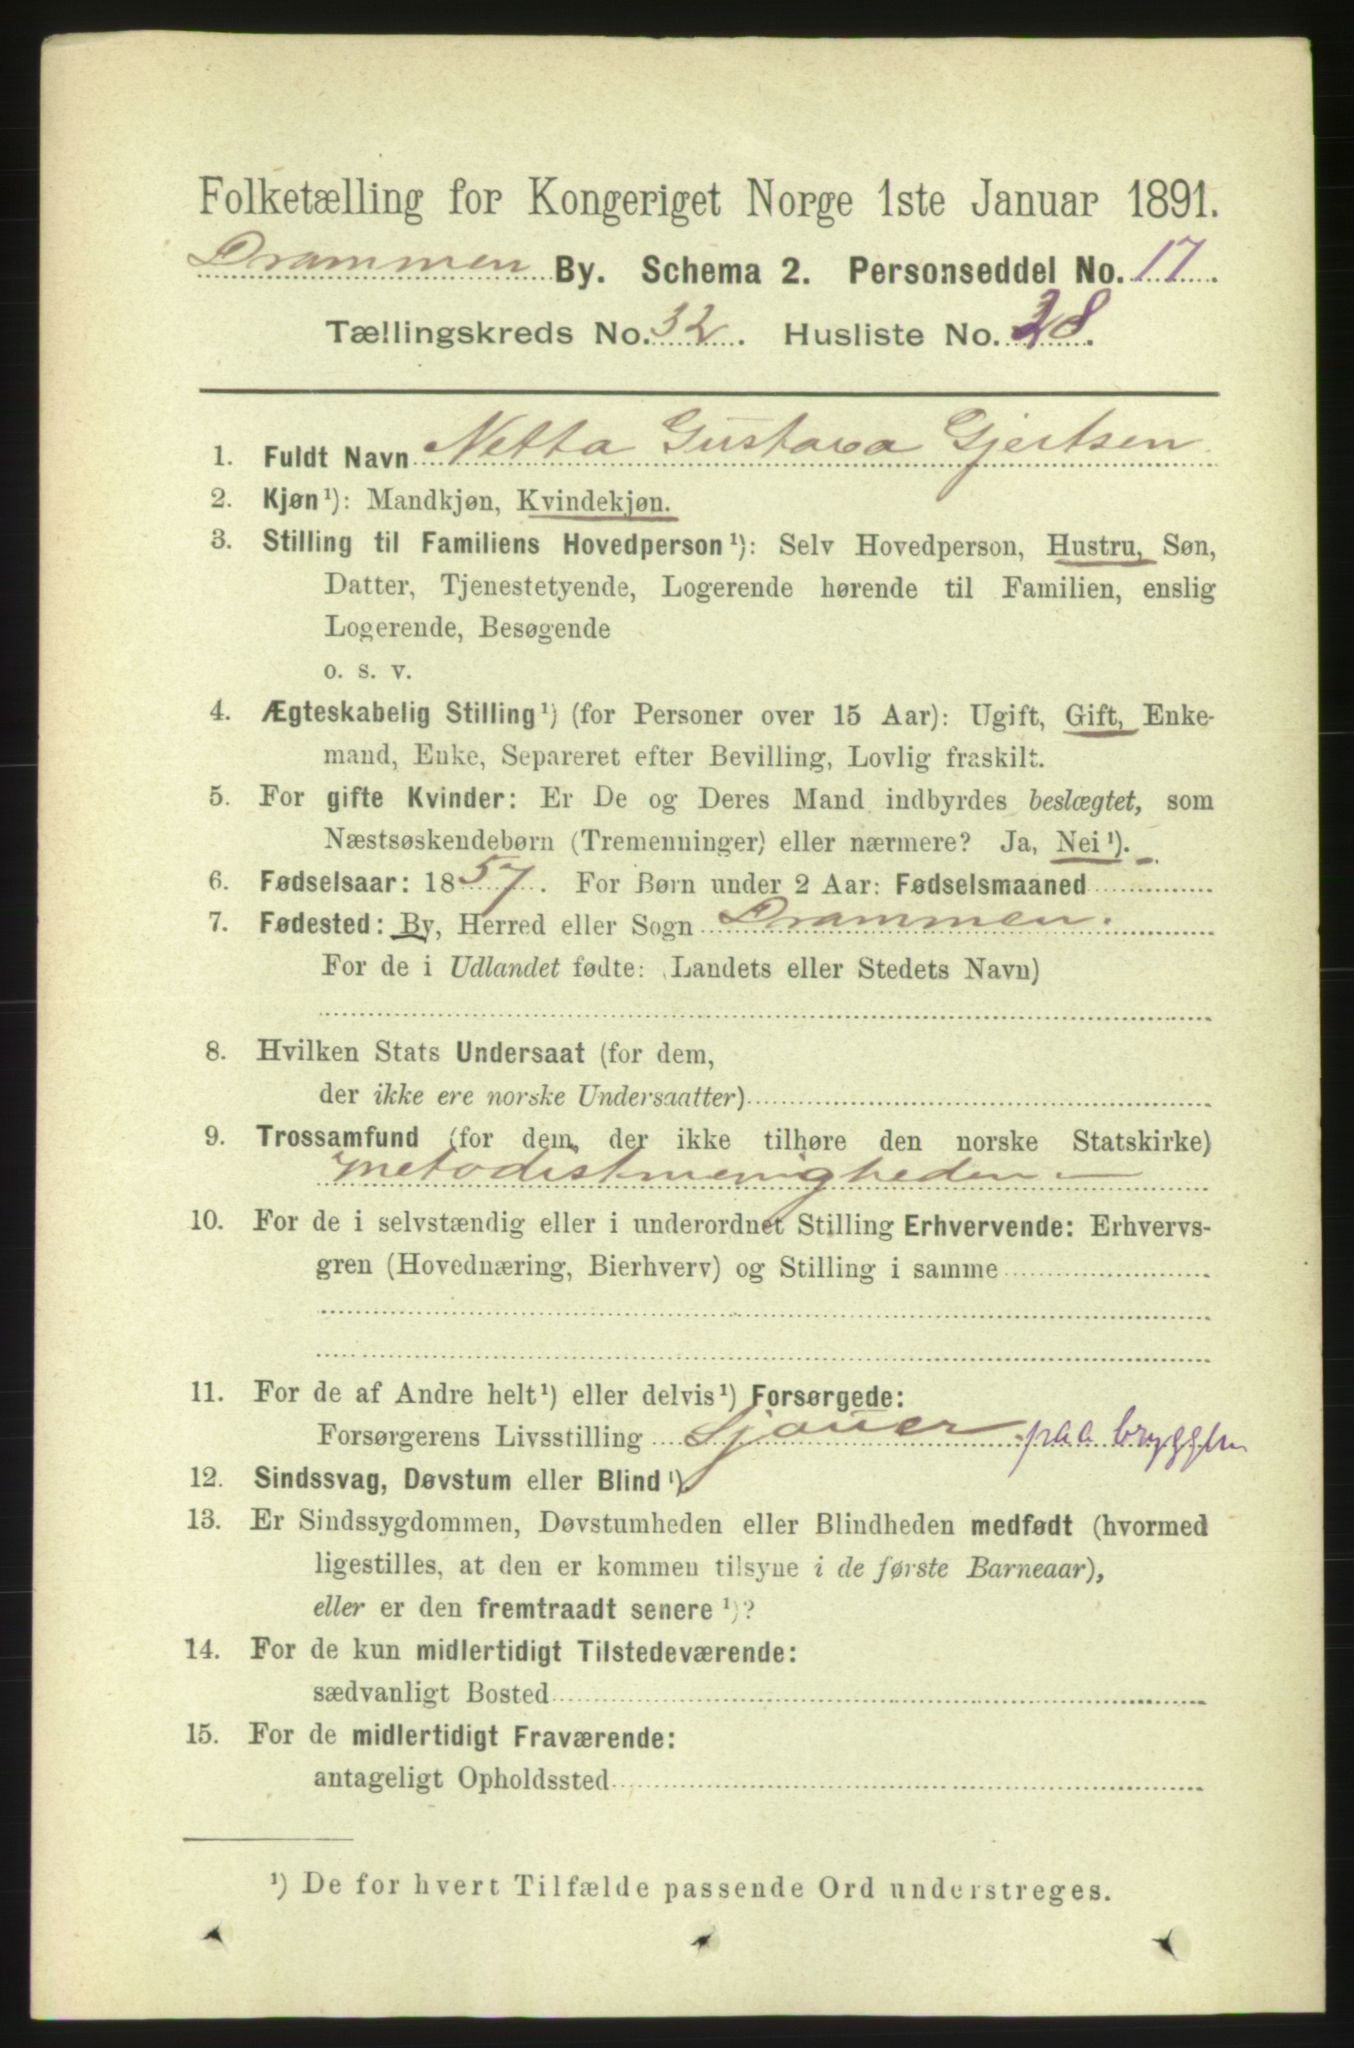 Folketælling for Kongeriget Norge 1ste Januar 1891.
Drammen By. Schema 2. Personseddel No. 17.
Tællingskreds No. 32. Husliste No. 38.
1. Fuldt Navn Netta Gustava Gjertsen
2. Kjøn¹): Mandkjøn, Kvindekjøn.
3. Stilling til Familiens Hovedperson¹): Selv Hovedperson, Hustru, Søn,
Datter, Tjenestetyende, Logerende hørende til Familien, enslig
Logerende, Besøgende
o. s. v.
4. Ægteskabelig Stilling¹) (for Personer over 15 Aar): Ugift, Gift, Enke-
mand, Enke, Separeret efter Bevilling, Lovlig fraskilt.
5. For gifte Kvinder: Er De og Deres Mand indbyrdes beslægtet, som
Næstsøskendebørn (Tremenninger) eller nærmere? Ja, Nei¹).
6. Fødselsaar: 1857. For Børn under 2 Aar: Fødselsmaaned
7. Fødested: By, Herred eller Sogn Drammen.
For de i Udlandet fødte: (Landets eller Stedets Navn)
8. Hvilken Stats Undersaat (for dem,
der ikke ere norske Undersaatter)
9. Trossamfund (for dem, der ikke tilhøre den norske Statskirke)
Metodistmenigheden
10. For de i selvstændig eller i underordnet Stilling Erhvervende: Erhvervs-
gren (Hovednæring, Bierhverv) og Stilling i samme
11. For de af Andre helt¹) eller delvis¹) Forsørgede:
Forsørgerens Livsstilling Sjouer paa bryggen
12. Sindssvag, Døvstum eller Blind¹)
13. Er Sindssygdommen, Døvstumheden eller Blindheden medfødt (hvormed
ligestilles, at den er kommen tilsyne i de første Barneaar),
eller er den fremtraadt senere¹)?
14. For de kun midlertidigt Tilstedeværende:
sædvanligt Bosted
15. For de midlertidigt Fraværende:
antageligt Opholdssted
¹) De for hvert Tilfælde passende Ord understreges.